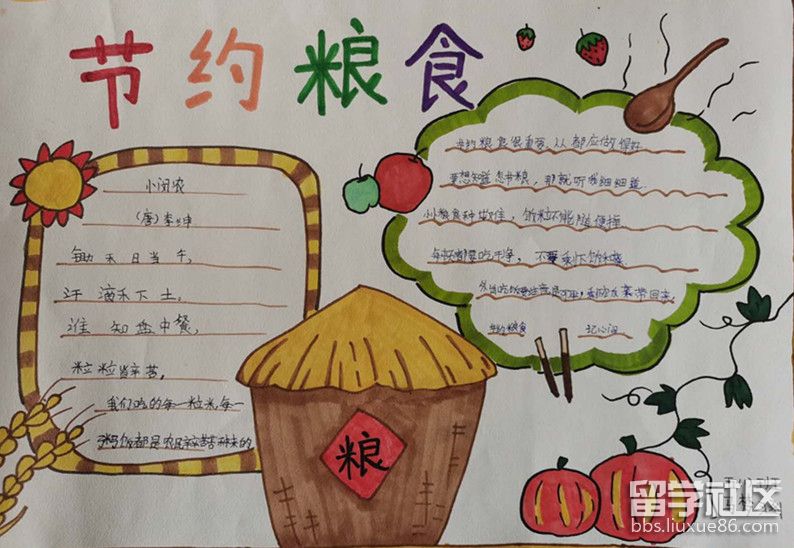 节约粮食
小闵农
(唐)李绅
锄禾日当午,
汗滴禾下土,
谁知盘中餐,
粒粒皆辛苦,
我们吃的每一粒米,每一
粥饭都是农民辛苦种来的
粮
节约粮食很重要,从都应做保好
要想知道怎节粮,那就听我细细道.
小粮食种做佳,饭粒不能随便掉
每杯都要吃干净,不要乘怀饭和菜.
节约粮食
记心间
留学社区
bbs.liuxue86.com